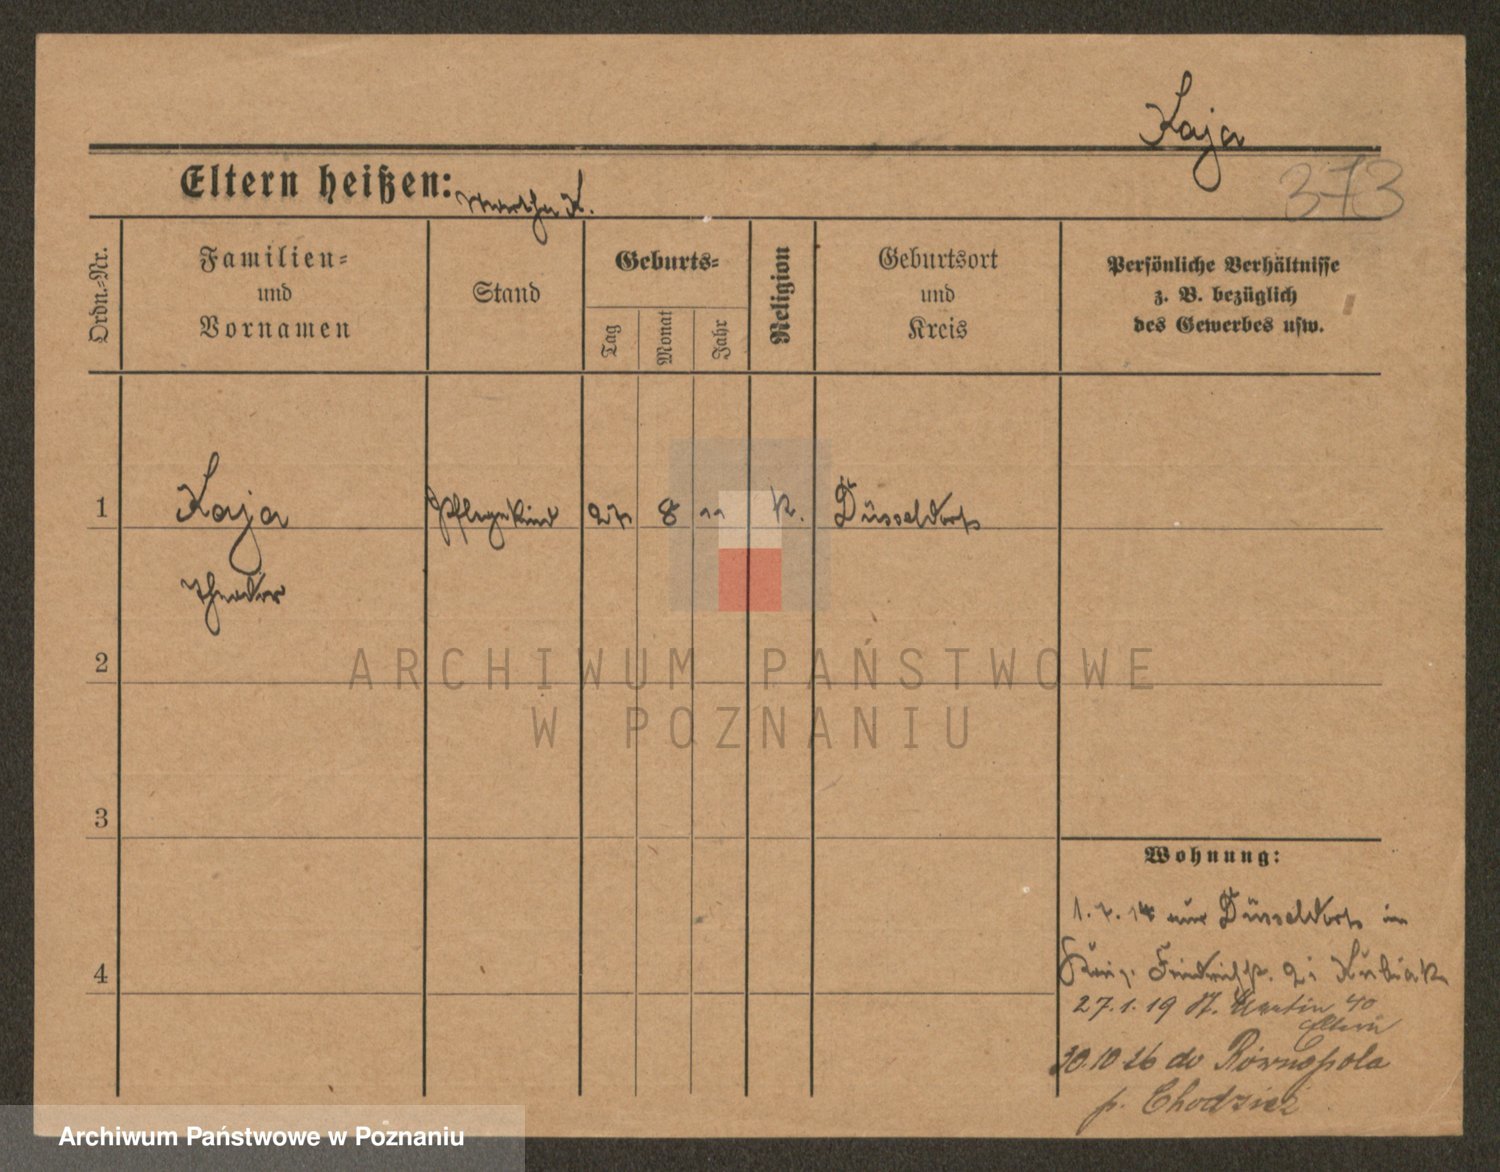 Kaja
373
Eltern heißen: Martha K.
Ordn.-Nr.
Familien-
und
Vornamen
Stand
Geburts-
Tag
Monat
Jahr
Religion
Geburtsort
und
Kreis
Persönliche Verhältnisse
z. B. bezüglich
des Gewerbes usw.
1
Kaja
Pflegekind
27
8
11
k.
Düsseldorf
Theodor
2
ARCHIWUM PAŃSTWOWE
W POZNANIU
3
Wohnung:
1.7.14 aus Düsseldorf in
Friedrichstr. Kubiak
4
27.1.19 St. Martin 40
Eltern
30.10.26 do Równopola
p. Chodzież
Archiwum Państwowe w Poznaniu